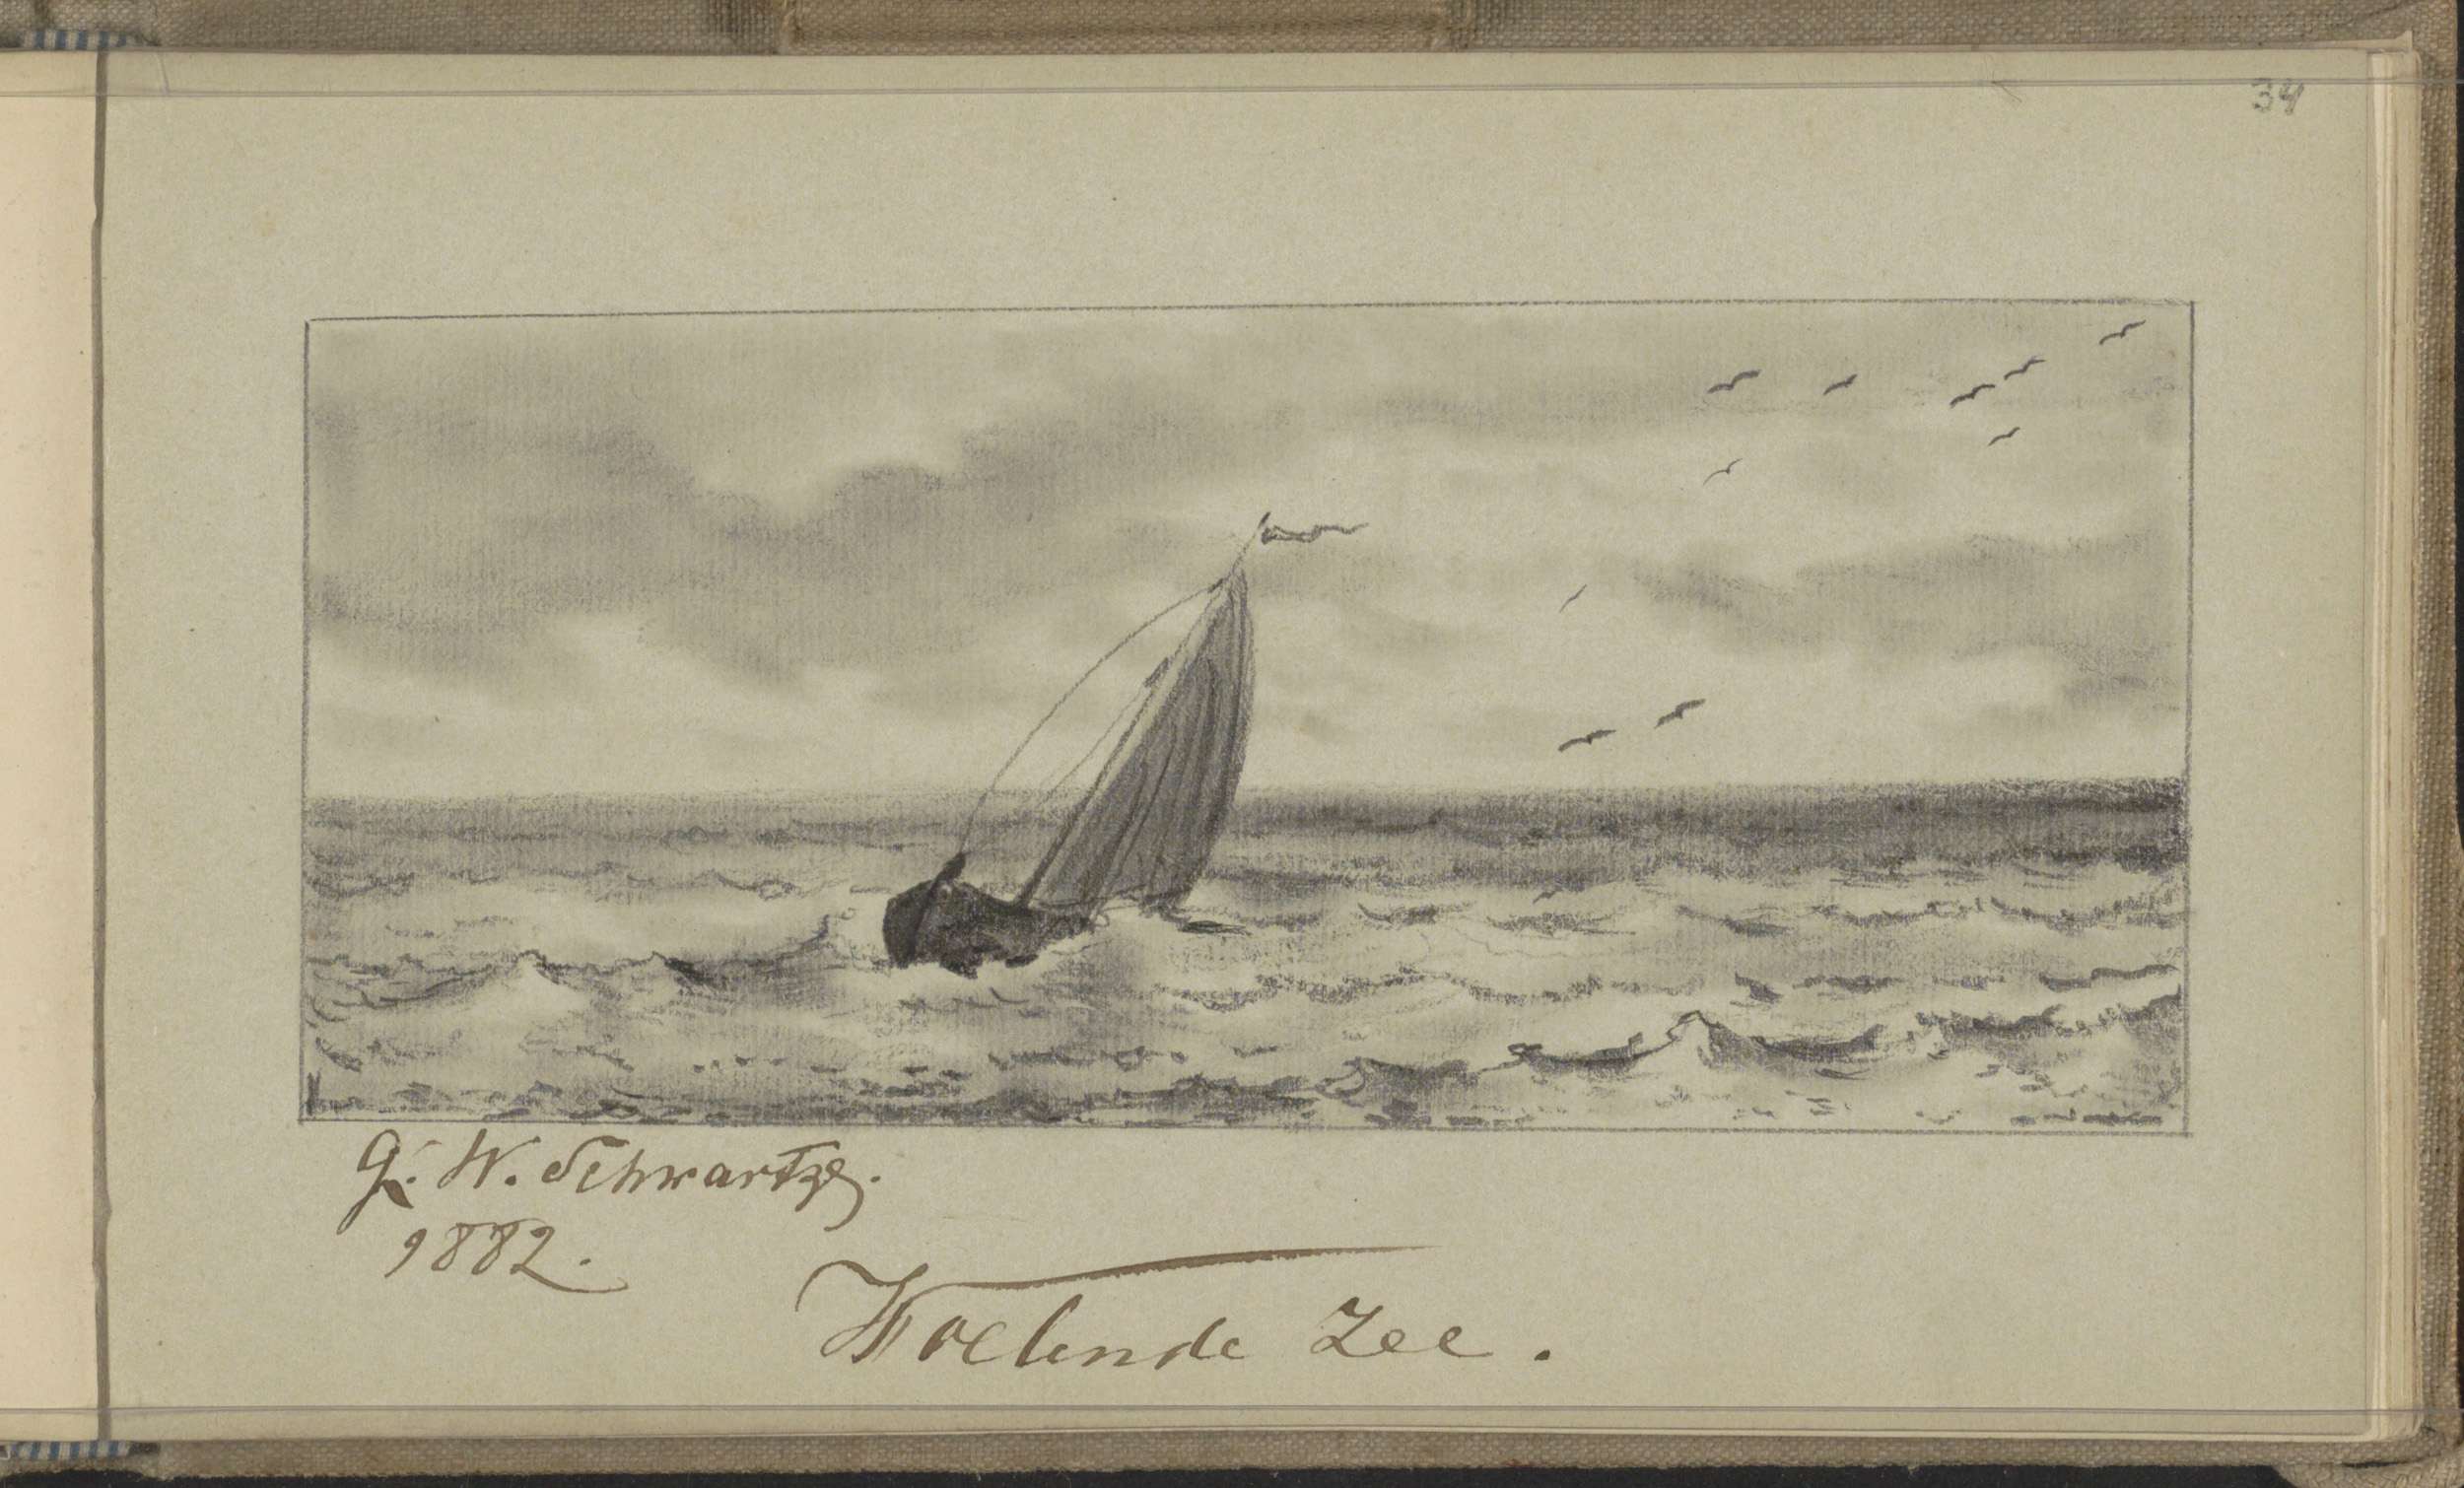 34
G. W. Schwartze.
1882.
Woelende Zee.